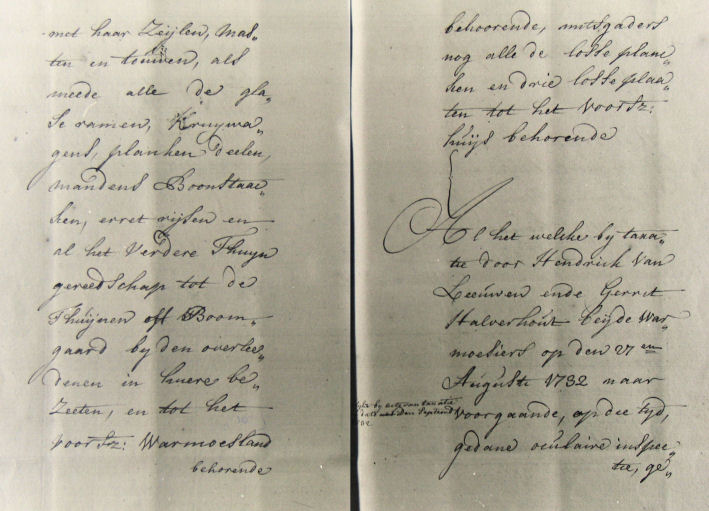 met haar Zeijlen, mas„
ten en touwen, als
meede alle de gla„
se ramen, Kruijwa„
gens, planken deelen,
mandens Boonstaa„
ken, erret rijsen en
al het Verdere Thuijn
gereedschap tot de
Thuijnen oft Boom„
gaard by den overlee„
denen in huere be„
Zeeten, en tot het
voorsz: Warmoesland
behorende
behoorende, mitsgaders
nog alle de losse plan„
ken en drie losse plaa„
ten tot het voorsz:
huijs behorende
Al het welke by taxa„
tie door Hendrick Van
Leeuwen ende Gerrit
Halverhout beijde War„
moesiers op den 27 en
Augusti 1732 naar
by acte van taxatie
voorgaande, op die tyd,
gedane oculaire inspec„
tie, ge„